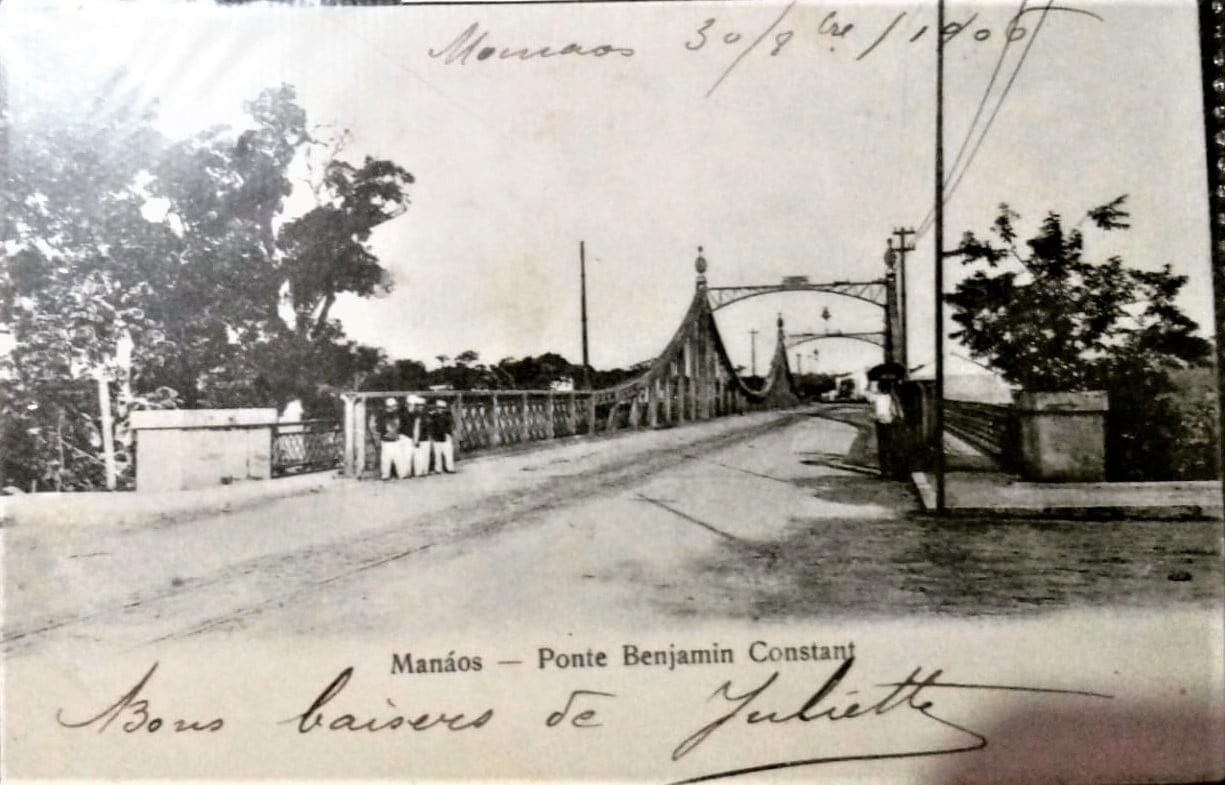 Manaos 30/8bre/1906
Manáos — Ponte Benjamin Constant
Bons baisers de Juliette